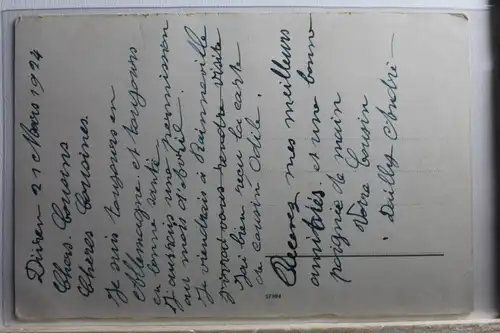 Düren 21 Mars 1924
Chers Cousins
Chères Cousines
Je suis toujours en
Allemagne et toujours
en bonne santé
J'aurais une permission
au mois d'avril.
Je viendrais à Rainneville
pour vous rendre visite
J'ai bien reçu la carte
de cousin Odile.
Recevez mes meilleurs
amitiés et une bonne
poignée de main
Votre Cousin
Dailly André